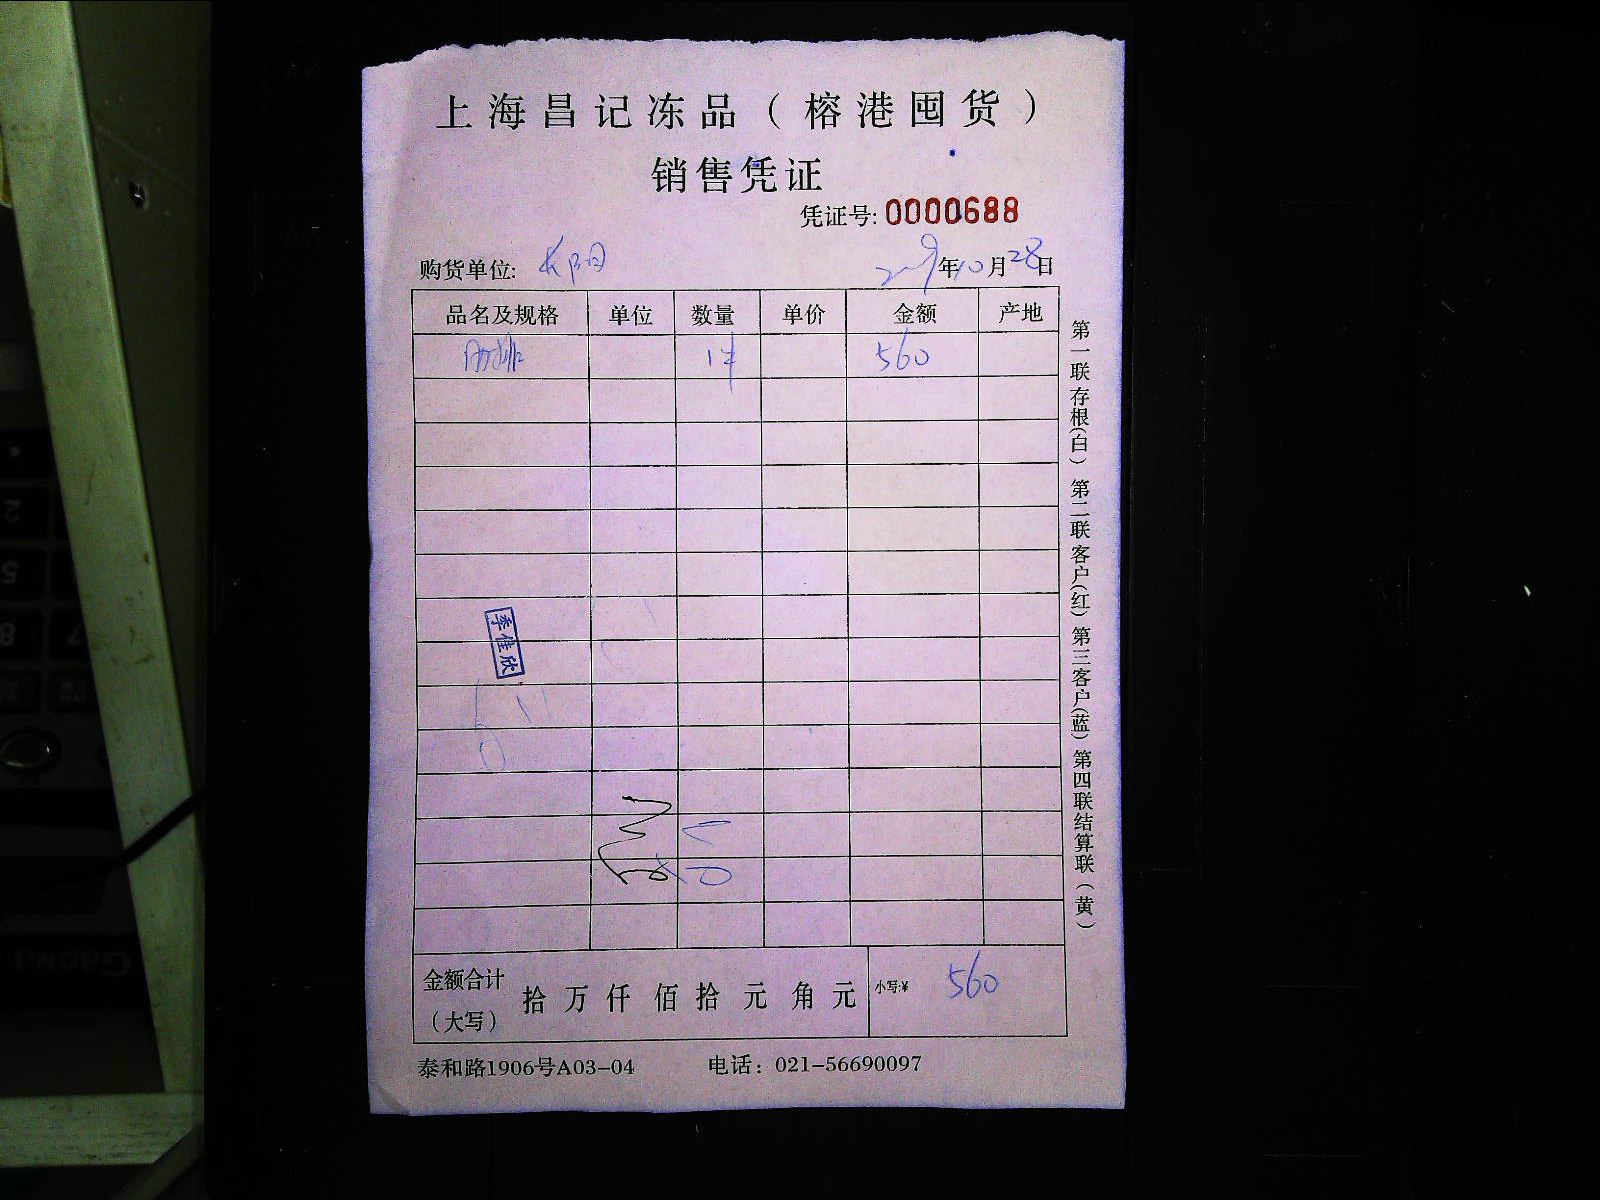 上海昌记冻品（榕港囤货）
销售凭证
凭证号: 0000688
购货单位: 长阳 2019年10月28日
品名及规格 单位 数量 单价 金额 产地
肋排 1件 560
季佳欣
金额合计（大写） 拾 万 仟 佰 拾 元 角 元 小写:¥ 560
泰和路1906号A03-04 电话：021-56690097
第一联存根(白) 第二联客户(红) 第三客户(蓝) 第四联结算联(黄)